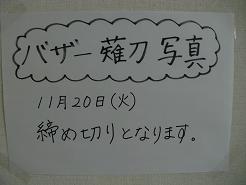 バザー 薙刀 写真
11月20日(火)
締め切りとなります。